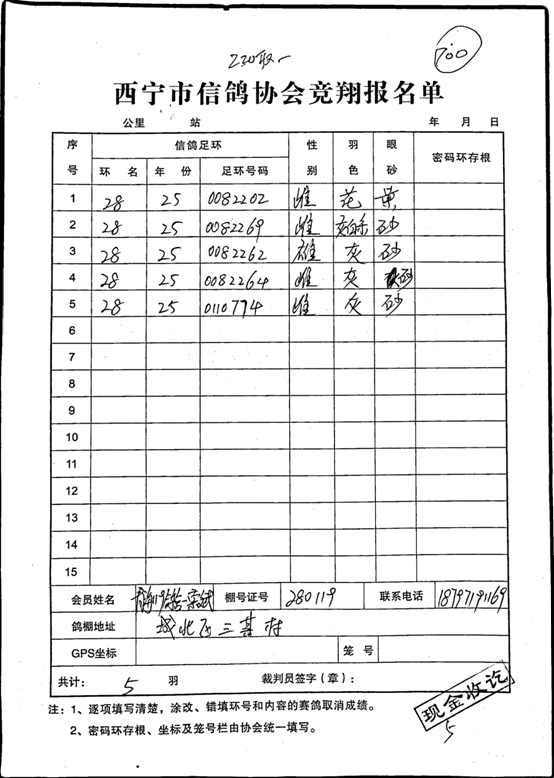 230取一
700
西宁市信鸽协会竞翔报名单
公里 站 年 月 日
序号 信鸽足环 性别 羽色 眼砂 密码环存根
环 名 年 份 足环号码
1 28 25 0082202 雌 花 黄
2 28 25 0082269 雌 砂
3 28 25 0082262 雄 灰 砂
4 28 25 0082264 雌 灰 砂
5 28 25 0110774 雌 灰 砂
6
7
8
9
10
11
12
13
14
15
会员姓名 棚号证号 280119 联系电话 18797191169
鸽棚地址 城北区三其村
GPS坐标 笼 号
共计： 5 羽 裁判员签字（章）：
现金收讫
5
注：1、逐项填写清楚，涂改、错填环号和内容的赛鸽取消成绩。
2、密码环存根、坐标及笼号栏由协会统一填写。